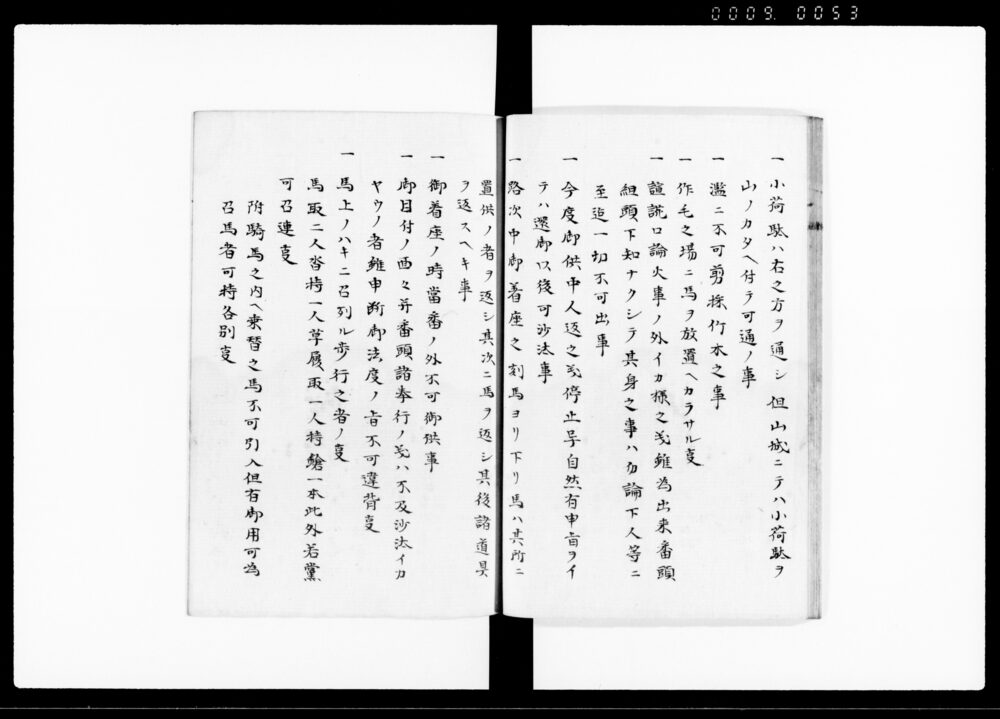 0009. 0053
一 小荷駄ハ右之方ヲ通シ但山城ニテハ小荷駄ヲ
山ノカタヘ付テ可通ノ事
一 濫ニ不可剪採竹木之事
一 作毛之場ニ馬ヲ放置ヘカラサル叓
一 諠譊口論火事ノ外イカ様之義雖為出来番頭
組頭下知ナクシテ其身之事ハ勿論下人等ニ
至迄一切不可出事
一 今度御供中人返之義停止畢自然有申旨ヲイ
テハ還御以後可沙汰事
一 路次中御著座之刻馬ヨリ下リ馬ハ其所ニ
置供ノ者ヲ返シ其次ニ馬ヲ返シ其後諸道具
ヲ返スヘキ事
一 御着座ノ時當番ノ外不可御供事
一 御目付ノ面々并番頭諸奉行ノ義ハ不及沙汰イカ
ヤウノ者雖申断御法度ノ旨不可違背叓
一 馬上ノハキニ召列ル歩行之者ノ叓
馬取二人沓持一人草履取一人持鑓一本此外若黨
可召連叓
附騎馬之内ヘ乗替之馬不可引入但有御用可為
召馬者可持各別叓